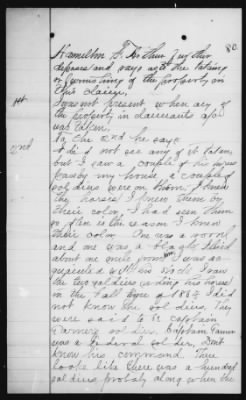 80.
Hamilton G. Arthur further
deposes and says as to the taking
or furnishing of the property in
this claim.
1st I was not present when any of
the property in claimants a/c
was taken.
2nd To the 2nd he says
I did not see any of it taken
but I saw a couple of his horses
pass by my house, a couple of
soldiers were on them. I knew
the horses I knew them by
their color, I had seen them
so often is the reason I knew
their color. One was a sorrel
and one was a black. I lived
about one mile from him was ac-
quainted with his stock. I saw
the two soldiers riding his horses
in the fall time of 1864 I did
not know the soldiers. They
were said to be Captain
soldiers. Captain
was a Federal soldier, Dont
know his command. There
looks like there was a hundred
soldiers probably along when the